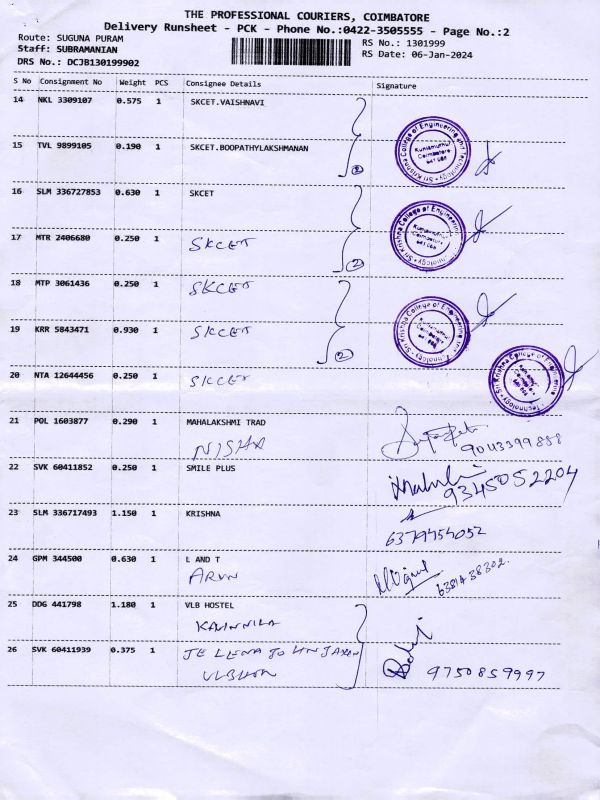 THE PROFESSIONAL COURIERS, COIMBATORE
Delivery Runsheet - PCK - Phone No.:0422-3505555 - Page No.:2
Route: SUGUNA PURAM
Staff: SUBRAMANIAN
DRS No.: DCJB130199902
RS No.: 1301999
RS Date: 06-Jan-2024
S No Consignment No Weight PCS Consignee Details Signature
14 NKL 3309107 0.575 1 SKCET.VAISHNAVI
15 TVL 9899105 0.190 1 SKCET.BOOPATHYLAKSHMANAN
2
Sri Krishna College of Engineering and Technology
Kuniamuthur
Coimbatore
641 008
16 SLM 336727853 0.630 1 SKCET
17 MTR 2406680 0.250 1 SKCET
2
Sri Krishna College of Engineering and Technology
Kuniamuthur
Coimbatore
641 008
18 MTP 3061436 0.250 1 SKCET
19 KRR 5843471 0.930 1 SKCET
2
Sri Krishna College of Engineering and Technology
20 NTA 12644456 0.250 1 SKCET
Sri Krishna College of Engineering and Technology
21 POL 1603877 0.290 1 MAHALAKSHMI TRAD
NISHA
22 SVK 60411852 0.250 1 SMILE PLUS
9345052204
23 SLM 336717493 1.150 1 KRISHNA
6379454052
24 GPM 344500 0.630 1 L AND T
ARUN
6381438302
25 DDG 441798 1.180 1 VLB HOSTEL
26 SVK 60411939 0.375 1
9750859997